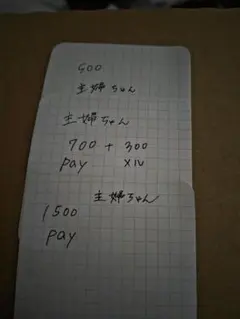 500
主婦ちゃん
主婦ちゃん
700 + 300
pay メル
主婦ちゃん
1500
pay